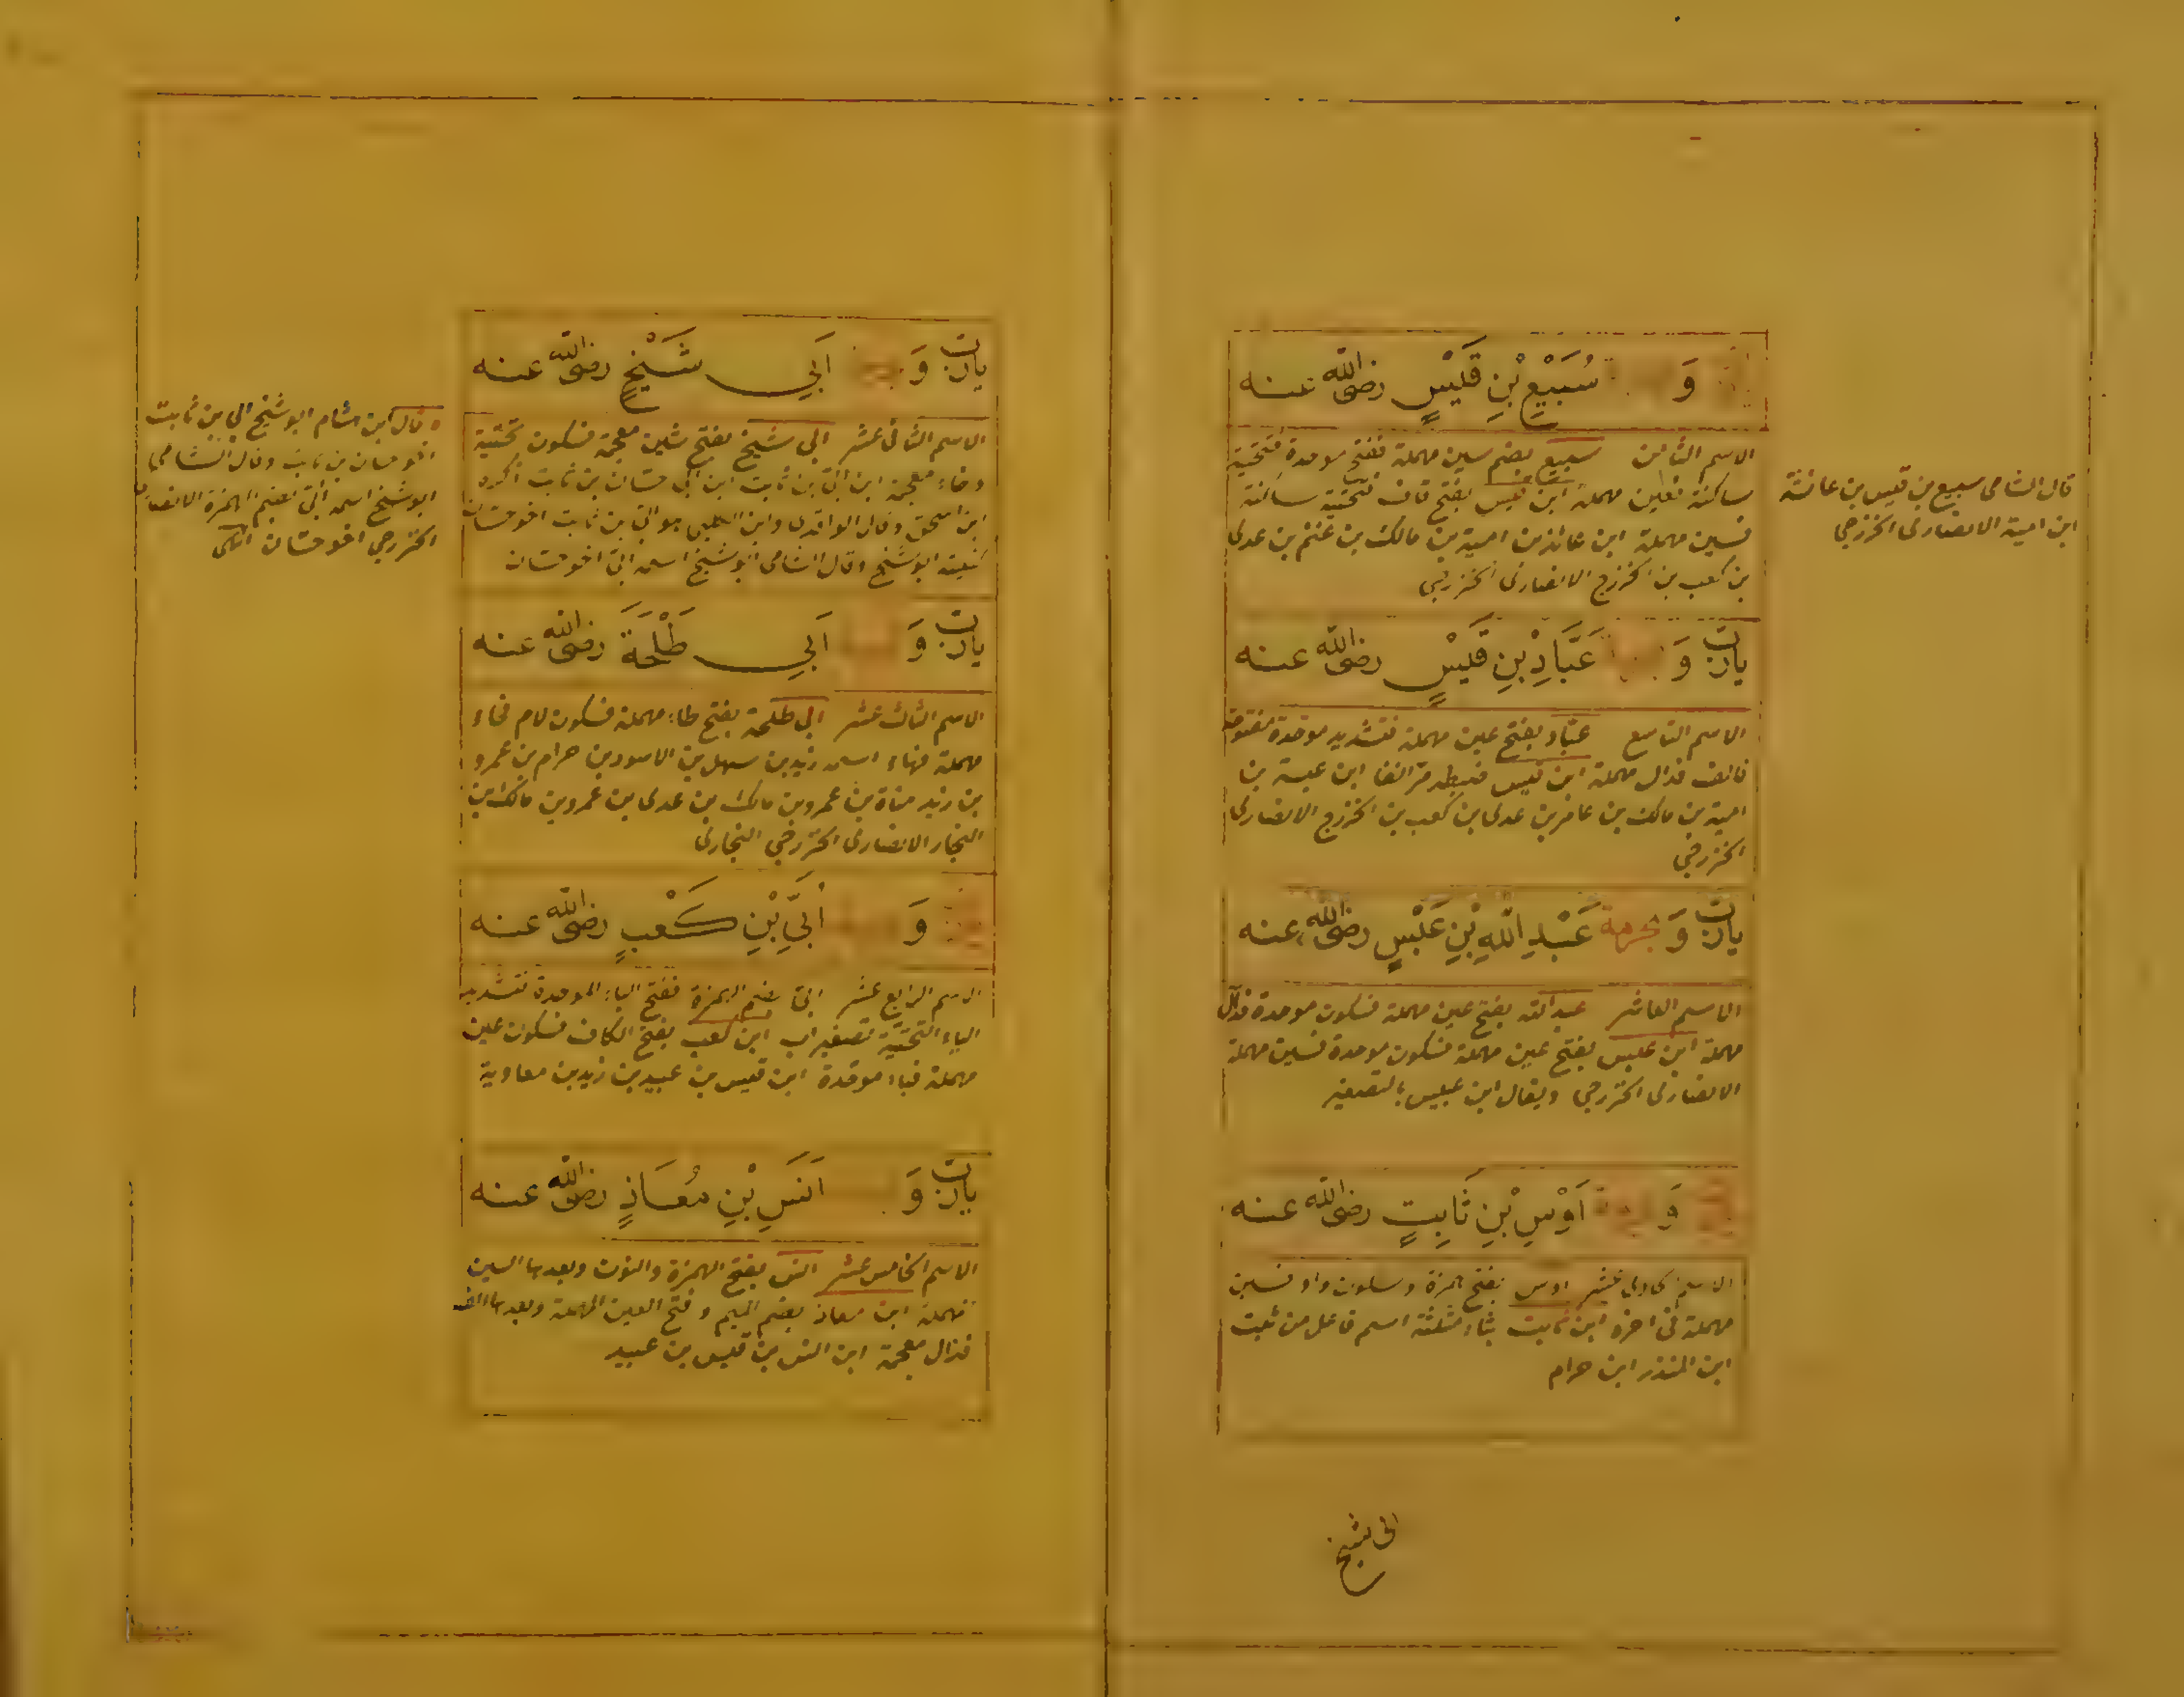 وَ سُبَيْعِ بْنِ قَيْسٍ رضى الله عنه
الاسم الثامن سبيع بضم سين مهملة ففتح موحدة فتحتية
ساكنة فعين مهملة ابن قيس بفتح قاف فتحتية ساكنة
فسين مهملة ابن عائذ بن امية بن مالك بن غنم بن عدى
بن كعب بن الخزرج الانصارى الخزرجى
قال الشامى سبيع بن قيس بن عائشة
ابن امية الانصارى الخزرجى
يارب وَ عَبَّادِ بْنِ قَيْسٍ رضى الله عنه
الاسم التاسع عباد بفتح عين مهملة فتشديد موحدة مفتوحة
فالف فدال مهملة ابن قيس ضبطه مر انفا ابن عبسة بن
امية بن مالك بن عامر بن عدى بن كعب بن الخزرج الانصارى
الخزرجى
يارب وَ بحرمة عَبْدِ اللهِ بْنِ عَبْسٍ رضى الله عنه
الاسم العاشر عبد الله بفتح عين مهملة فسكون موحدة فدال
مهملة ابن عبس بفتح عين مهملة فسكون موحدة فسين مهملة
الانصارى الخزرجى ويقال ابن عبيس بالتصغير
وَ اَوْسِ بْنِ ثَابِتٍ رضى الله عنه
الاسم الحادى عشر اوس بفتح همزة وسكون واو فسين
مهملة فى اخره ابن ثابت بثاء مثلثة اسم فاعل من ثبت
ابن المنذر ابن حرام
ابى شيخ
يارب وَ اَبِي شَيْخٍ رضى الله عنه
الاسم الثانى عشر ابى شيخ بفتح شين معجمة فسكون تحتية
وخاء معجمة ابن ابى بن ثابت ابن اخى حسان بن ثابت ذكره
ابن اسحق وقال الواقدى وابن الكلبى هو ابى بن ثابت اخو حسان
كنيته ابو شيخ وقال الشامى ابو شيخ اسمه ابى اخو حسان
وقال ابن هشام ابو شيخ ابى بن ثابت
اخو حسان بن ثابت وقال الشامى
ابو شيخ اسمه ابى بضم الهمزة الانصارى
الخزرجى اخو حسان انتهى
يارب وَ اَبِي طَلْحَةَ رضى الله عنه
الاسم الثالث عشر ابى طلحة بفتح طاء مهملة فسكون لام فحاء
مهملة فهاء اسمه زيد بن سهل بن الاسود بن حرام بن عمرو
بن زيد مناة بن عمرو بن مالك بن عدى بن عمرو بن مالك بن
النجار الانصارى الخزرجى النجارى
وَ اُبَيِّ بْنِ كَعْبٍ رضى الله عنه
الاسم الرابع عشر ابى بضم الهمزة ففتح الباء الموحدة فتشديد
الياء التحتية تصغير اب ابن كعب بفتح الكاف فسكون عين
مهملة فباء موحدة ابن قيس بن عبيد بن زيد بن معاوية
يارب وَ اَنَسِ بْنِ مُعَاذٍ رضى الله عنه
الاسم الخامس عشر انس بفتح الهمزة والنون وبعدها السين
مهملة ابن معاذ بضم الميم وفتح العين المهملة وبعدها الف
فذال معجمة ابن انس بن قيس بن عبيد